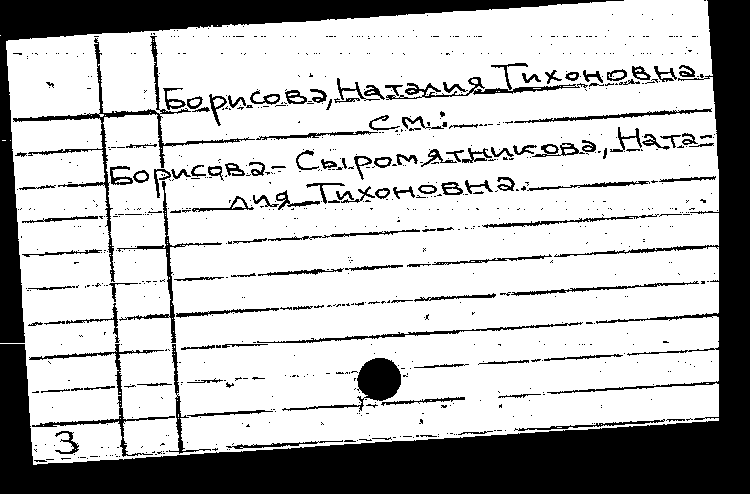 Борисова, Наталия Тихоновна.
см.:
Борисова-Сыромятникова, Ната-
лия Тихоновна.
3